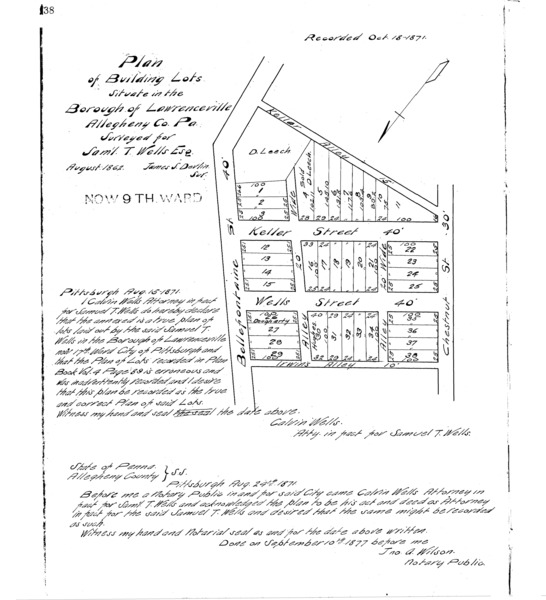 38
Recorded Oct. 18-1871.
Plan
of Building Lots
Situate in the
Borough of Lawrenceville
Allegheny Co. Pa.
Surveyed for
Saml. T. Wells Esq.
August 1862. James S. Devlin
Sur.
NOW 9 TH. WARD
Keller Alley 15
D. Leech
Sold D. Leech
40'
100
1
2
3
4
5
6
7
8
9
10
11
100
Bellefontaine St
Keller Street 40'
Chestnut St. 30'
12
13
14
15
20
16
17
18
19
20
21
20 Wide
22
23
24
25
Wells Street 40'
Dougherty
27
28
29
Alley
31
32
33
Alley
35
36
37
38
Irwins Alley 10'
Pittsburgh Aug. 15-1871.
I Calvin Wells Attorney in fact
for Samuel T. Wells do hereby declare
that the annexed is a true plan of
lots laid out by the said Samuel T.
Wells in the Borough of Lawrenceville
now 17th. Ward City of Pittsburgh and
that the Plan of Lots recorded in Plan
Book Vol. 4 Page 89 is erroneous and
was inadvertently recorded and I desire
that this plan be recorded as the true
and correct Plan of said Lots.
Witness my hand and seal the seal the date above.
Calvin Wells.
Atty. in fact for Samuel T. Wells.
State of Penna.
Allegheny County } S.S.
Pittsburgh Aug. 24th. 1871
Before me a Notary Public in and for said City came Calvin Wells Attorney in
fact for Saml. T. Wells and acknowledged the plan to be his act and deed as Attorney
in fact for the said Samuel T. Wells and desired that the same might be recorded
as such.
Witness my hand and Notarial seal as and for the date above written.
Done on September 10th. 1877 before me
Jno. A. Wilson.
Notary Public.